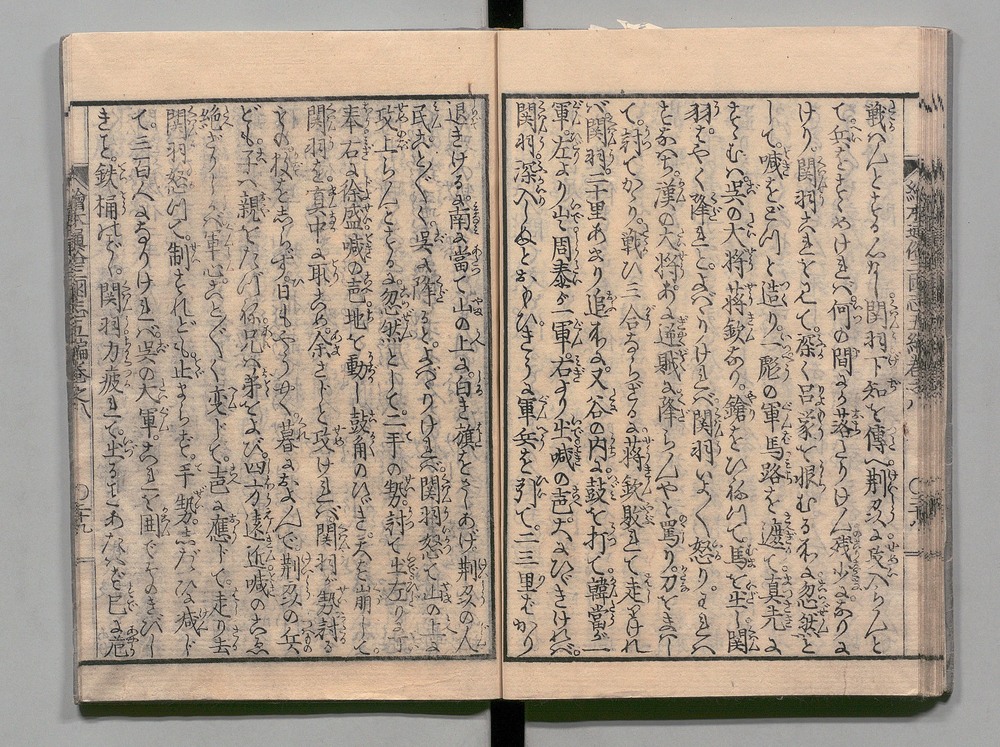 戦へんとするところに関羽下知を傳へ荆刕に攻入らんと
て兵をすゝめけれバ何の間にか落たりけん残少になりに
けり。関羽これを見て。深く呂蒙を恨むるれよ忽然と
して。喊をどつと造り。一彪の軍馬路を遮て。真先に
すゝむハ呉の大将蒋欽なり。鎗をひねつて。馬を出し関
羽。はやく降れ。とよバゝりけれバ関羽いよ〳〵怒り。われハ
これ漢の大将。あに逆賊に降らんやと罵り刀をまハし
て。討てかゝり。戦ひ三合ならざるに蒋欽敗れて走りけれ
バ関羽二十里あまり追れよ。又谷の内に鼓を打て韓當が一
軍。左より出周泰が一軍。右より出喊の声大にひゞきけれバ。
関羽。深入しぬとおもひ。きうに軍兵を引て。二三里ばかり
退きけるに南に當て山の上に白き旗をさしあげ荆刕の人
民ことごとく呉に降るとよバゝりけれバ関羽怒て山の上に
攻上らんとするに忽然として二手の勢討て出左りに丁
奉右に徐盛喊の声地を動し鼓角のひゞき天を崩して。
関羽を真中に取こめ。余さじと攻けれバ関羽が勢討るゝ
もの数をしらず日もやう〳〵暮におよんで荆刕の兵
ども子ハ親をたづね兄ハ弟をよび。四方遠近喊のこゑ
絶ざりしバ軍心ことごとく変じて。声に應じて。走り去
関羽怒つて。制すれども止まらず。手勢したひに减じ
て三百人になりけれバ呉の大軍。これを囲でそのきびし
きこと。鉄桶のごとく。関羽力疲れて出ることあたハず已に危
繪本通俗三国志五編巻之八
〇二十九